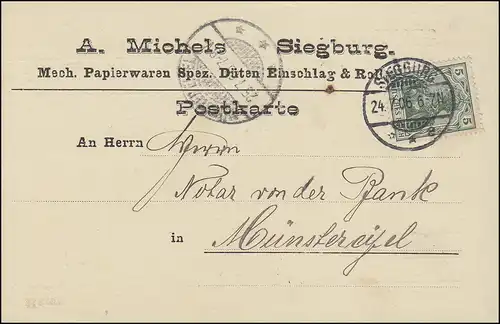 A. Michels Siegburg.
Mech. Papierwaren Spez. Düten Einschlag & Roll
Postkarte
SIEGBURG
24. 06. 6-7N.
* * a
5 5
An Herrn Herrn
Notar von der Pfank
in Münstereifel